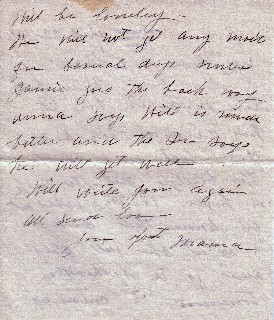 will be lonely.
He will not get any mail
for several days unless
Jamie goes the back way
Anna says Will is much
better and the Dr says
he will get well
Will write you again
all send love
Mama